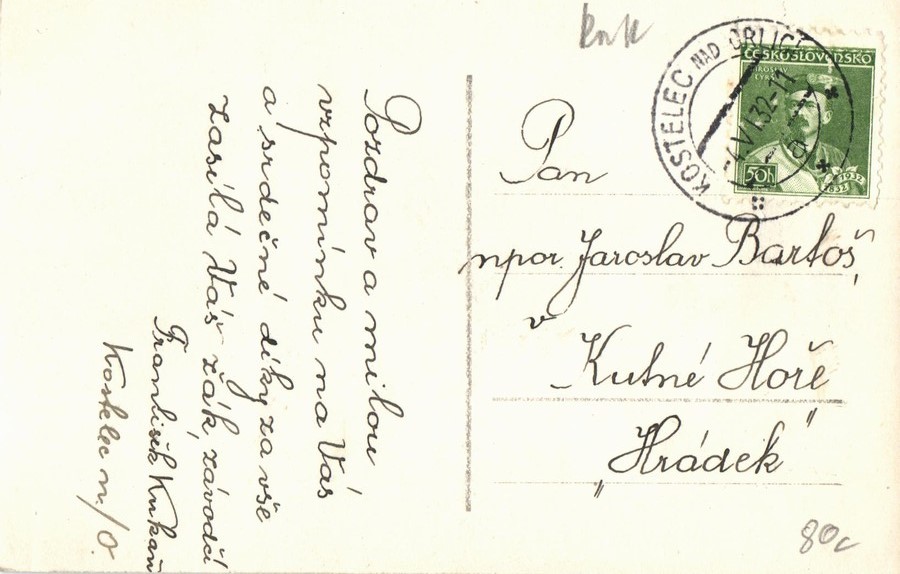 Pozdrav a milou
vzpomínku na Vás
a srdečné díky za vše
zasílá Váš žák, závodčí
František Kukaň
Kostelec n./O.
Pan
npor. Jaroslav Bartoš,
v
Kutné Hoře
„Hrádek“
KOSTELEC NAD ORLICÍ
ČESKOSLOVENSKO
MIROSLAV
TYRŠ
50h
1932
1832
80c